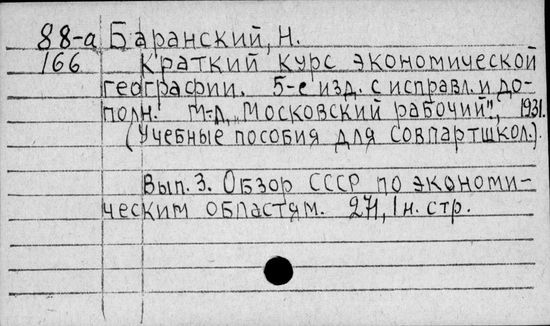 88-а Баранский, Н.
166 Краткий курс экономической
географии. 5-е изд. с исправл. и до-
полн. М.-Л., "Московский рабочий", 1931.
(Учебные пособия для совпартшкол.).
Вып. 3. Обзор СССР по экономи-
ческим областям. 271, 1 н. стр.